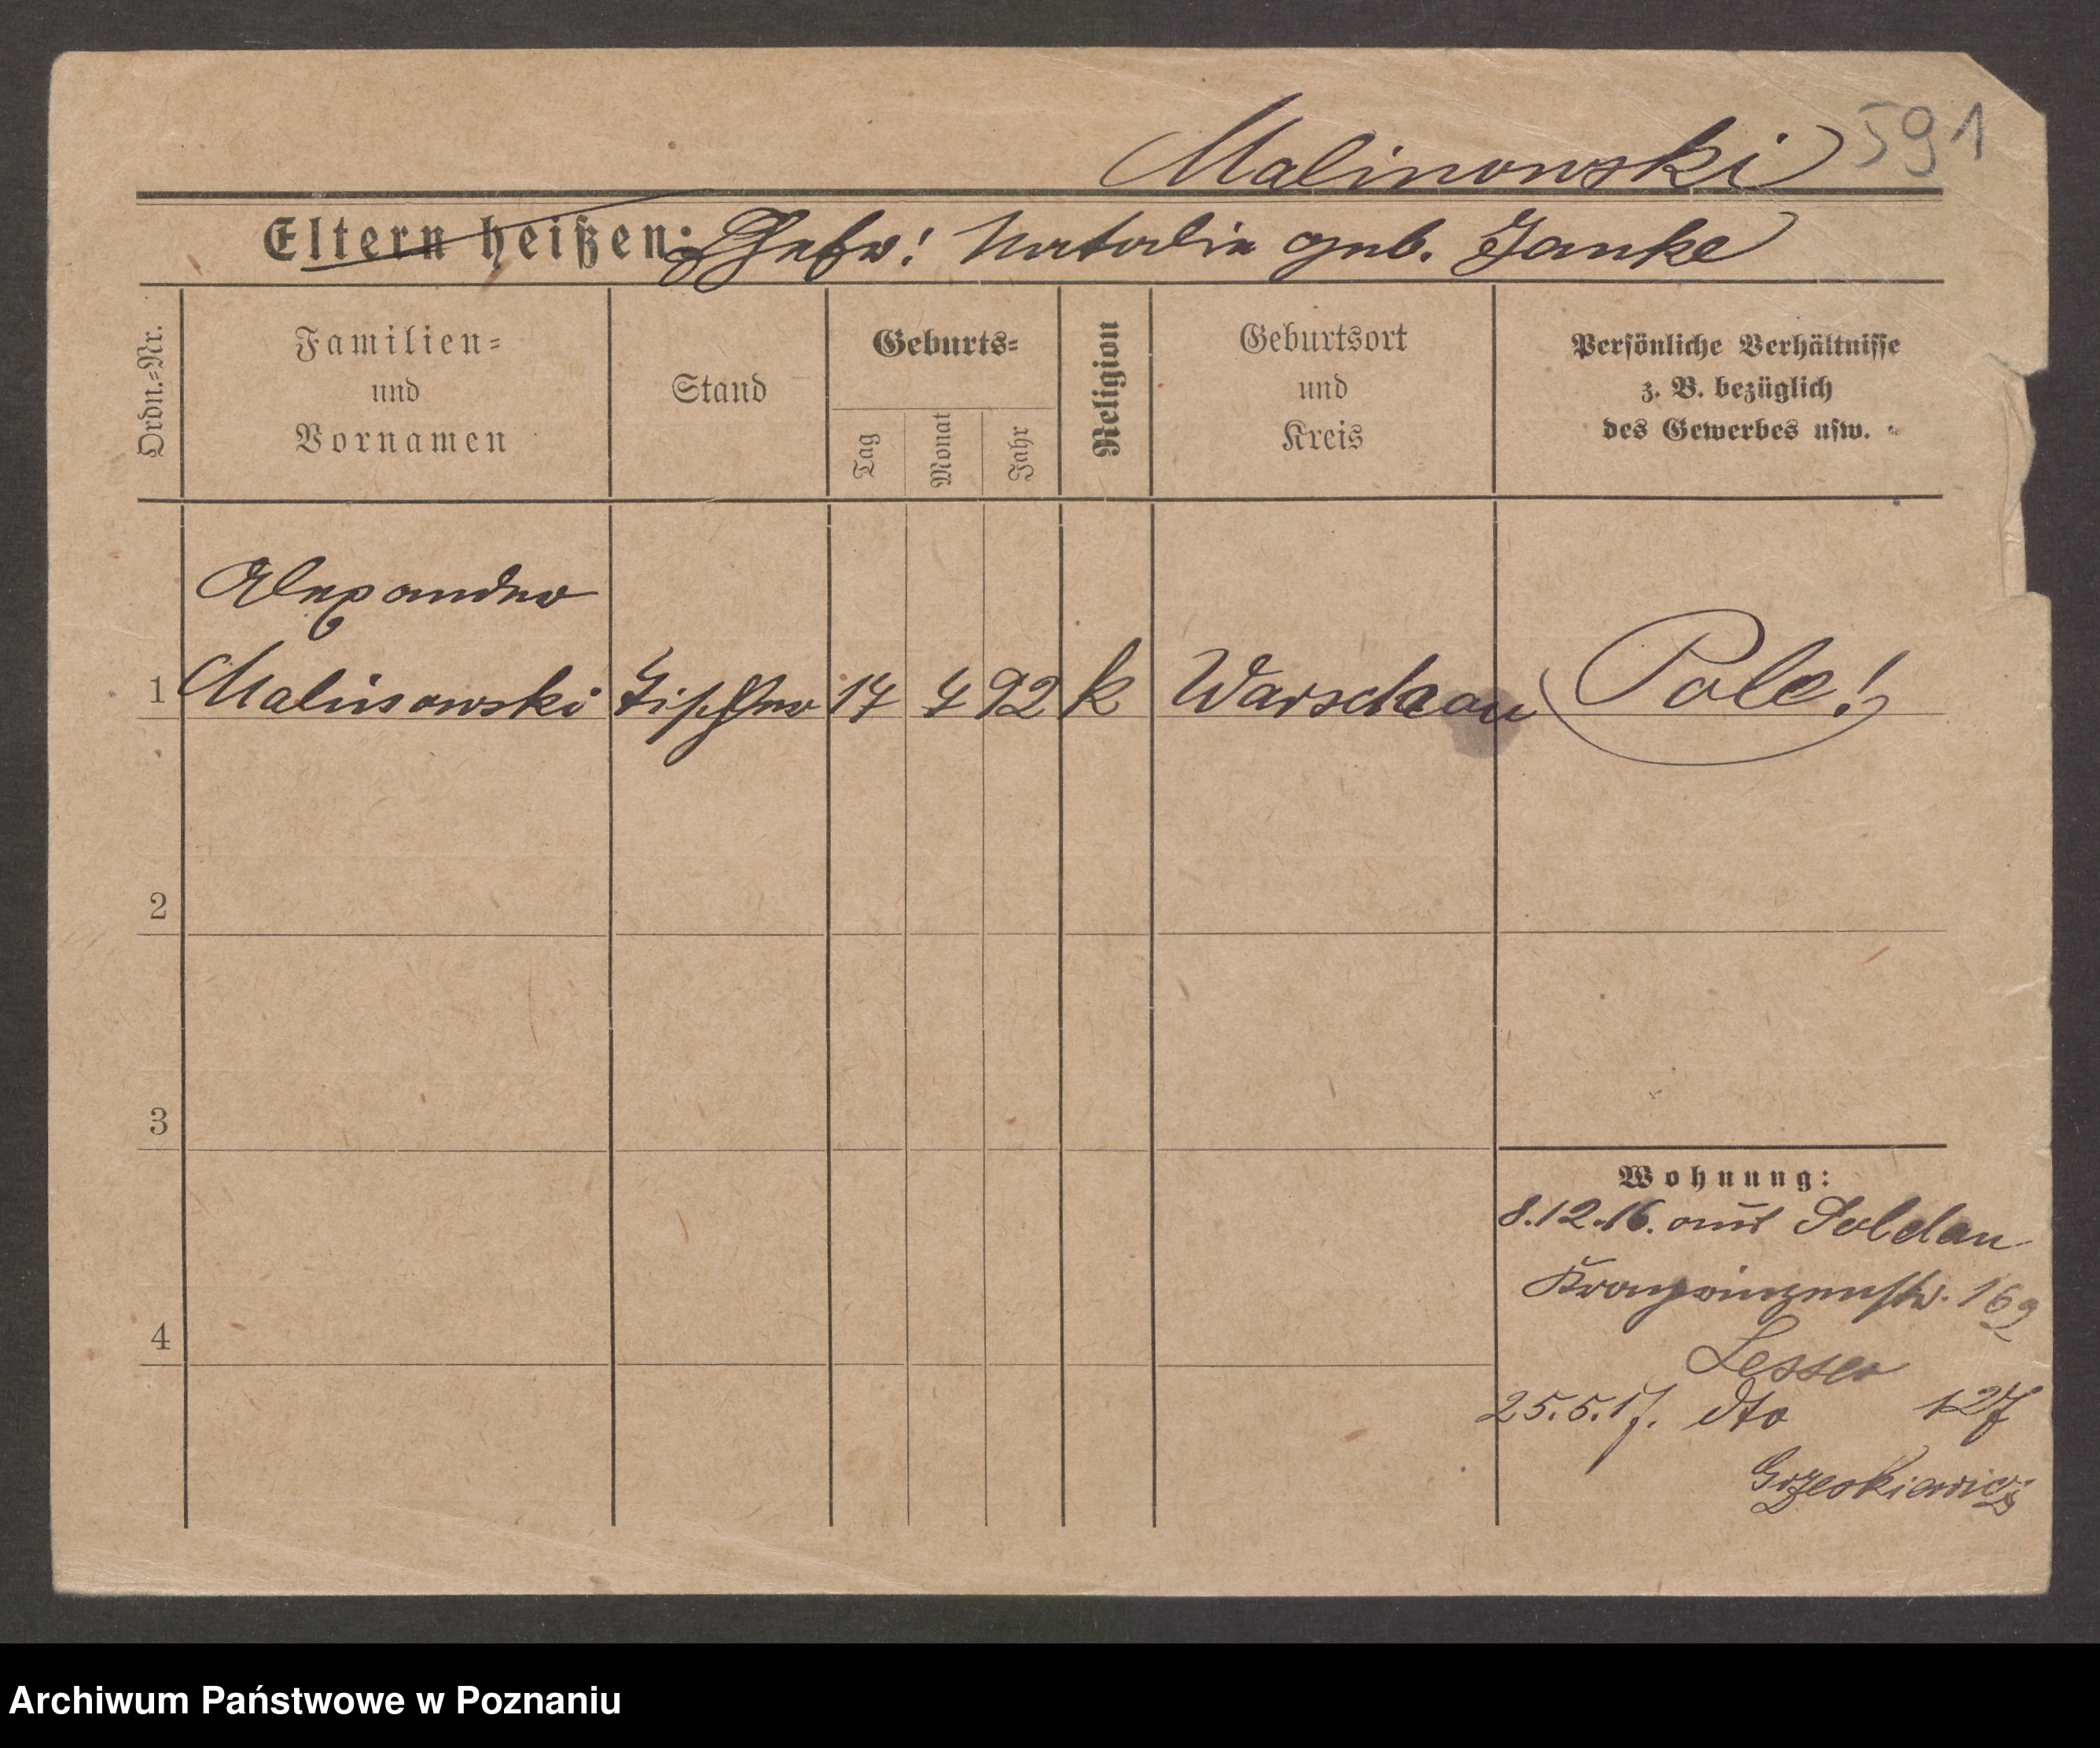 Malinowski 591
Eltern heißen: Ehefr! Natalie geb. Janke
Ordn.=Nr.
Familien=
und
Vornamen
Stand
Geburts=
Tag
Monat
Jahr
Religion
Geburtsort
und
Kreis
Persönliche Verhältnisse
z. B. bezüglich
des Gewerbes usw.
Alexander
1 Malinowski Tischler 17 4 92 k Warschau Pole!
2
3
4
Wohnung:
8.12.16. aus Soldau
Kronprinzenstr. 162
Lesser
25.5.17. dto 127
Grzeskiewicz
Archiwum Państwowe w Poznaniu